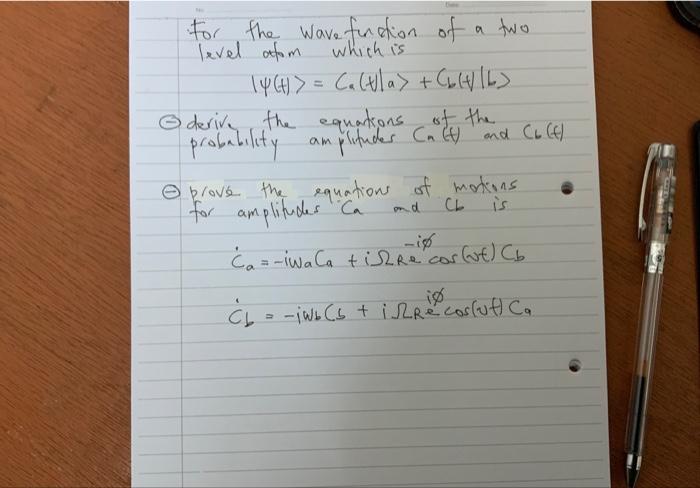 for the wave function of a two
level atom which is
|ψ(t)> = Ca(t)|a> + Cb(t)|b>
⊖ derive the equations of the
probability amplitudes Ca(t) and Cb(t)
⊖ prove the equations of motions
for amplitudes Ca and Cb is
Ċa = -iωaCa + iΩRe^-iø cos(νt) Cb
Ċb = -iωbCb + iΩRe^iø cos(νt) Ca